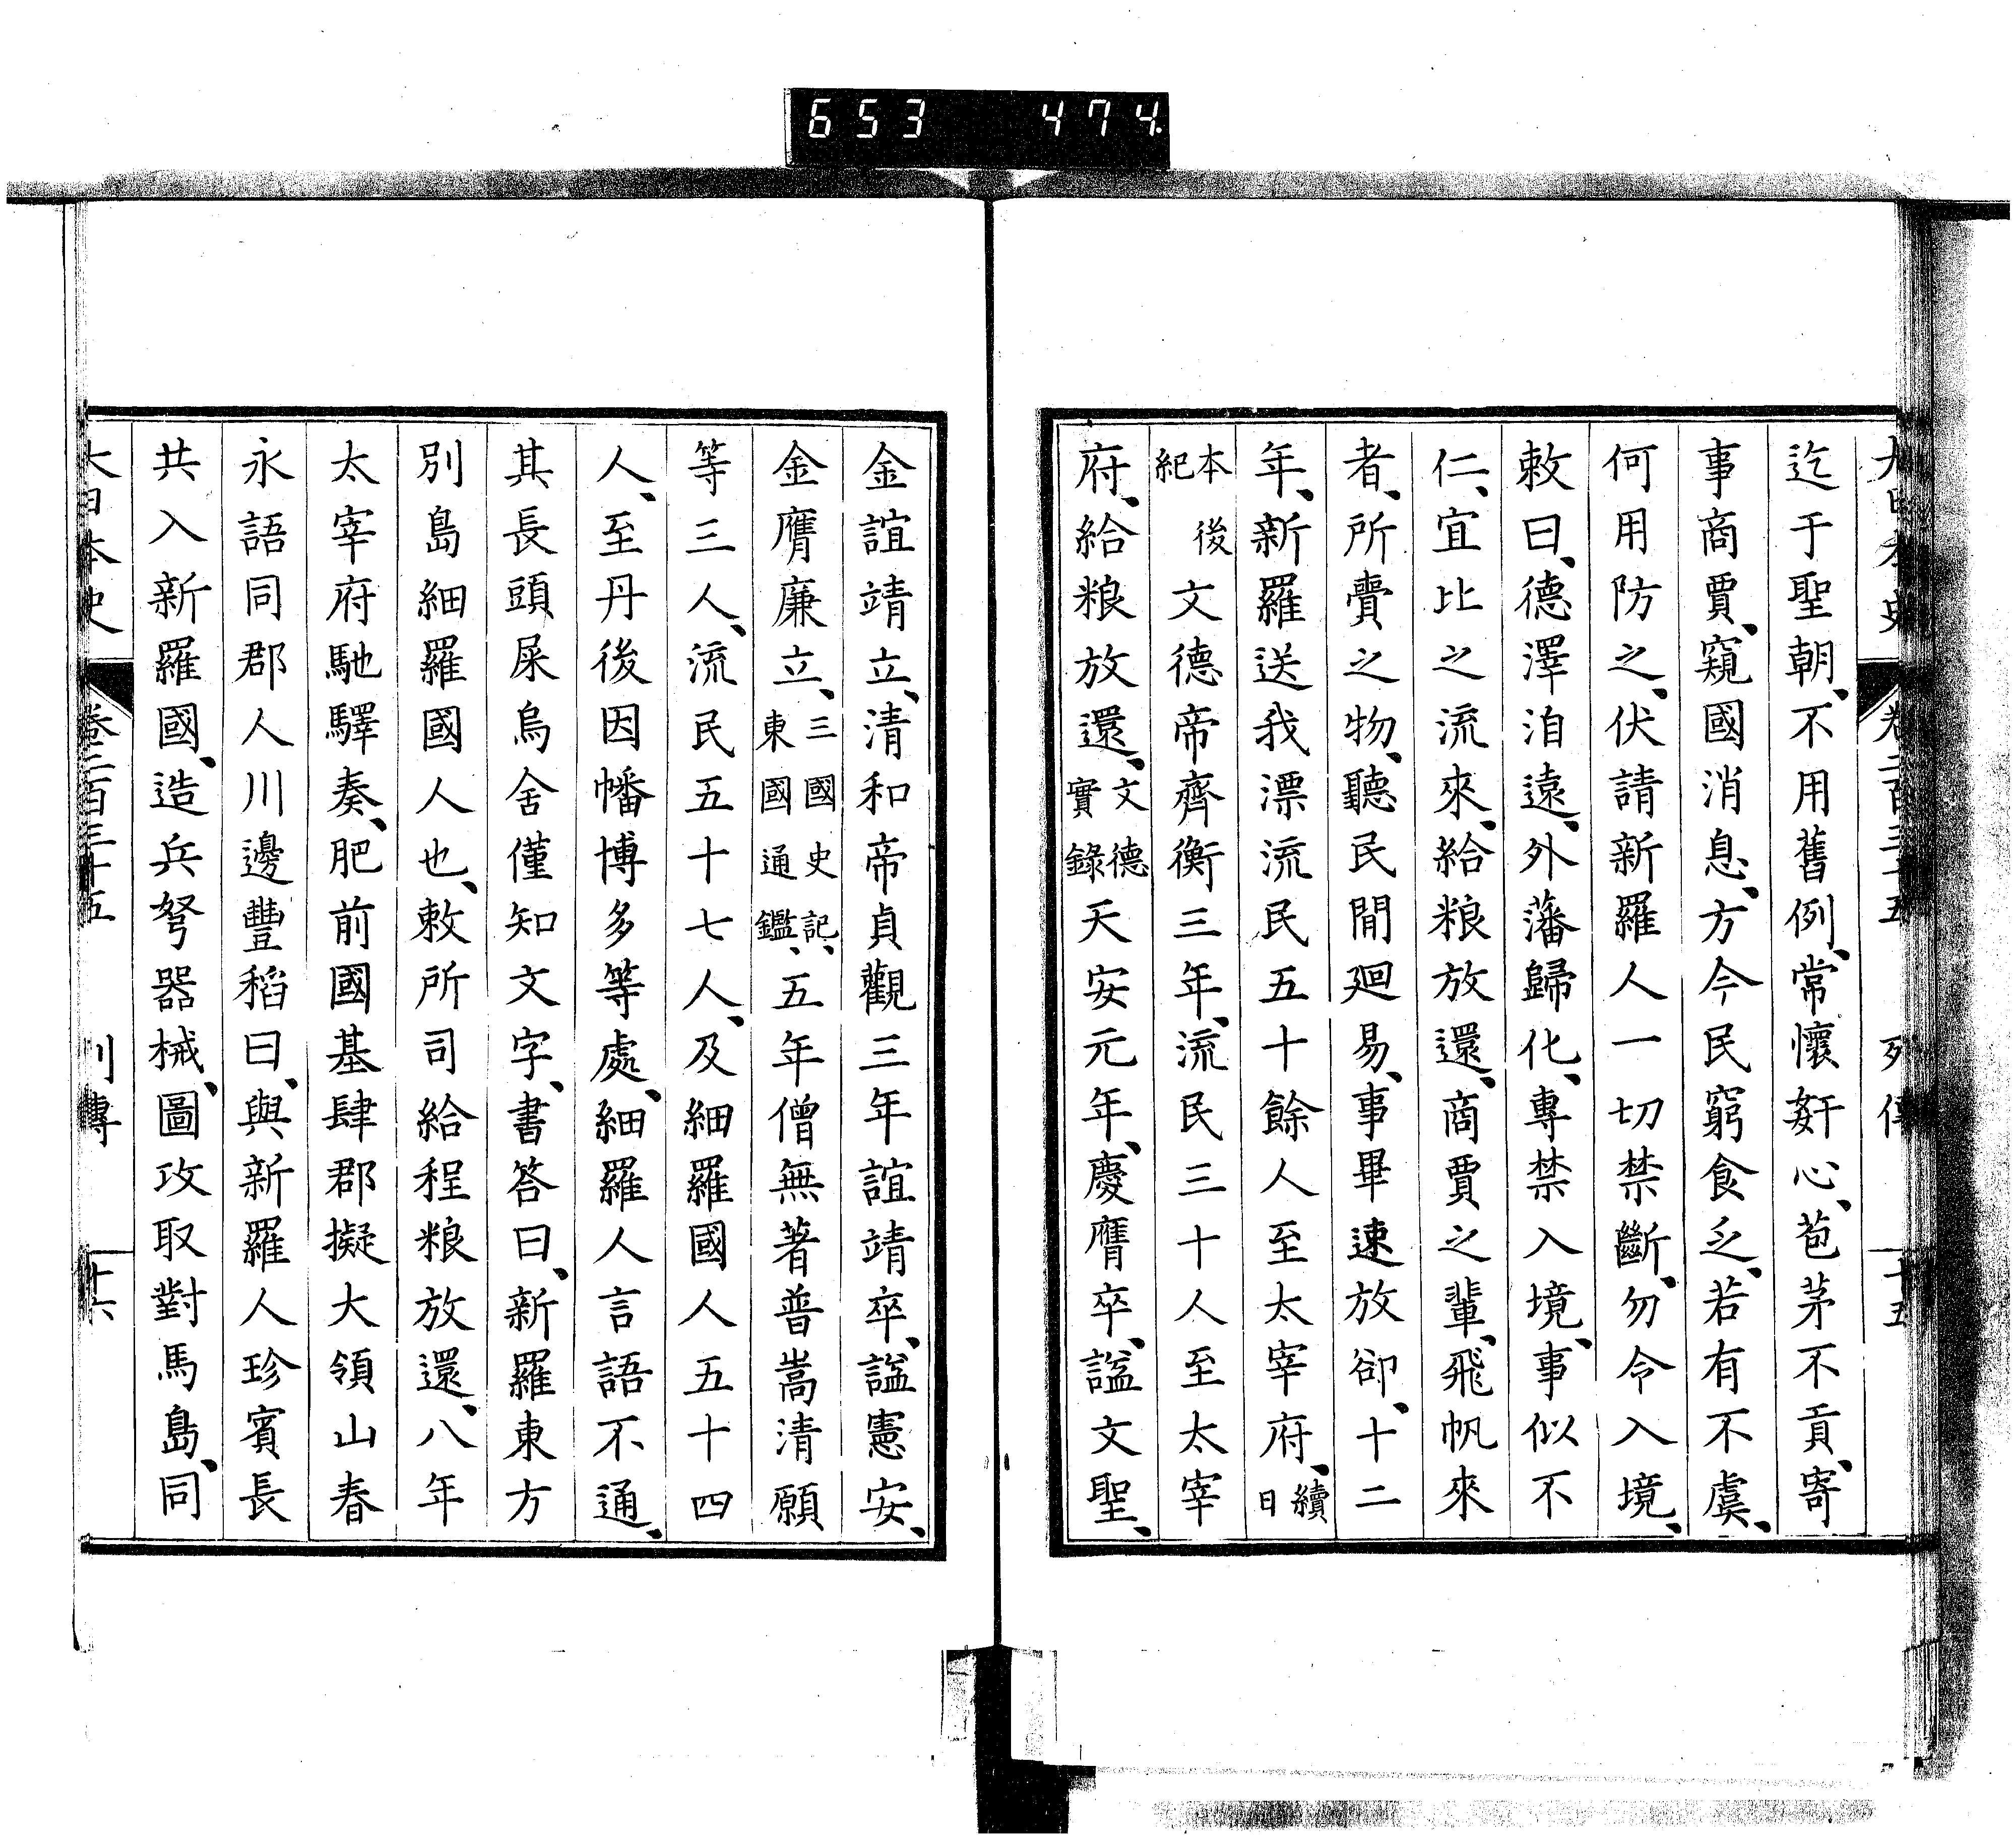 653 474.
大日本史 卷二百三十五 列傳 十五
迄于聖朝、不用舊例、常懷姧心、苞茅不貢、寄
事商賈、窺國消息、方今民窮食乏、若有不虞、
何用防之、伏請新羅人一切禁斷、勿令入境、
敕曰、德澤洎遠、外藩歸化、專禁入境、事似不
仁、宜比之流來、給粮放還、商賈之輩、飛帆來
者、所賷之物、聽民間廻易、事畢速放卻、十二
年、新羅送我漂流民五十餘人至太宰府、續日
本後紀文德帝齊衡三年、流民三十人至太宰
府、給粮放還、文德實錄天安元年、慶膺卒、諡文聖、
金誼靖立、清和帝貞觀三年誼靖卒、諡憲安、
金膺廉立、三國史記、東國通鑑、五年僧無著普嵩清願
等三人、流民五十七人、及細羅國人五十四
人、至丹後因幡博多等處、細羅人言語不通、
其長頭屎烏舍僅知文字、書答曰、新羅東方
別島細羅國人也、敕所司給程粮放還、八年
太宰府馳驛奏、肥前國基肆郡擬大領山春
永語同郡人川邊豐稻曰、與新羅人珍賓長
共入新羅國、造兵弩器械、圖攻取對馬島、同
大日本史 卷二百三十五 列傳 十六